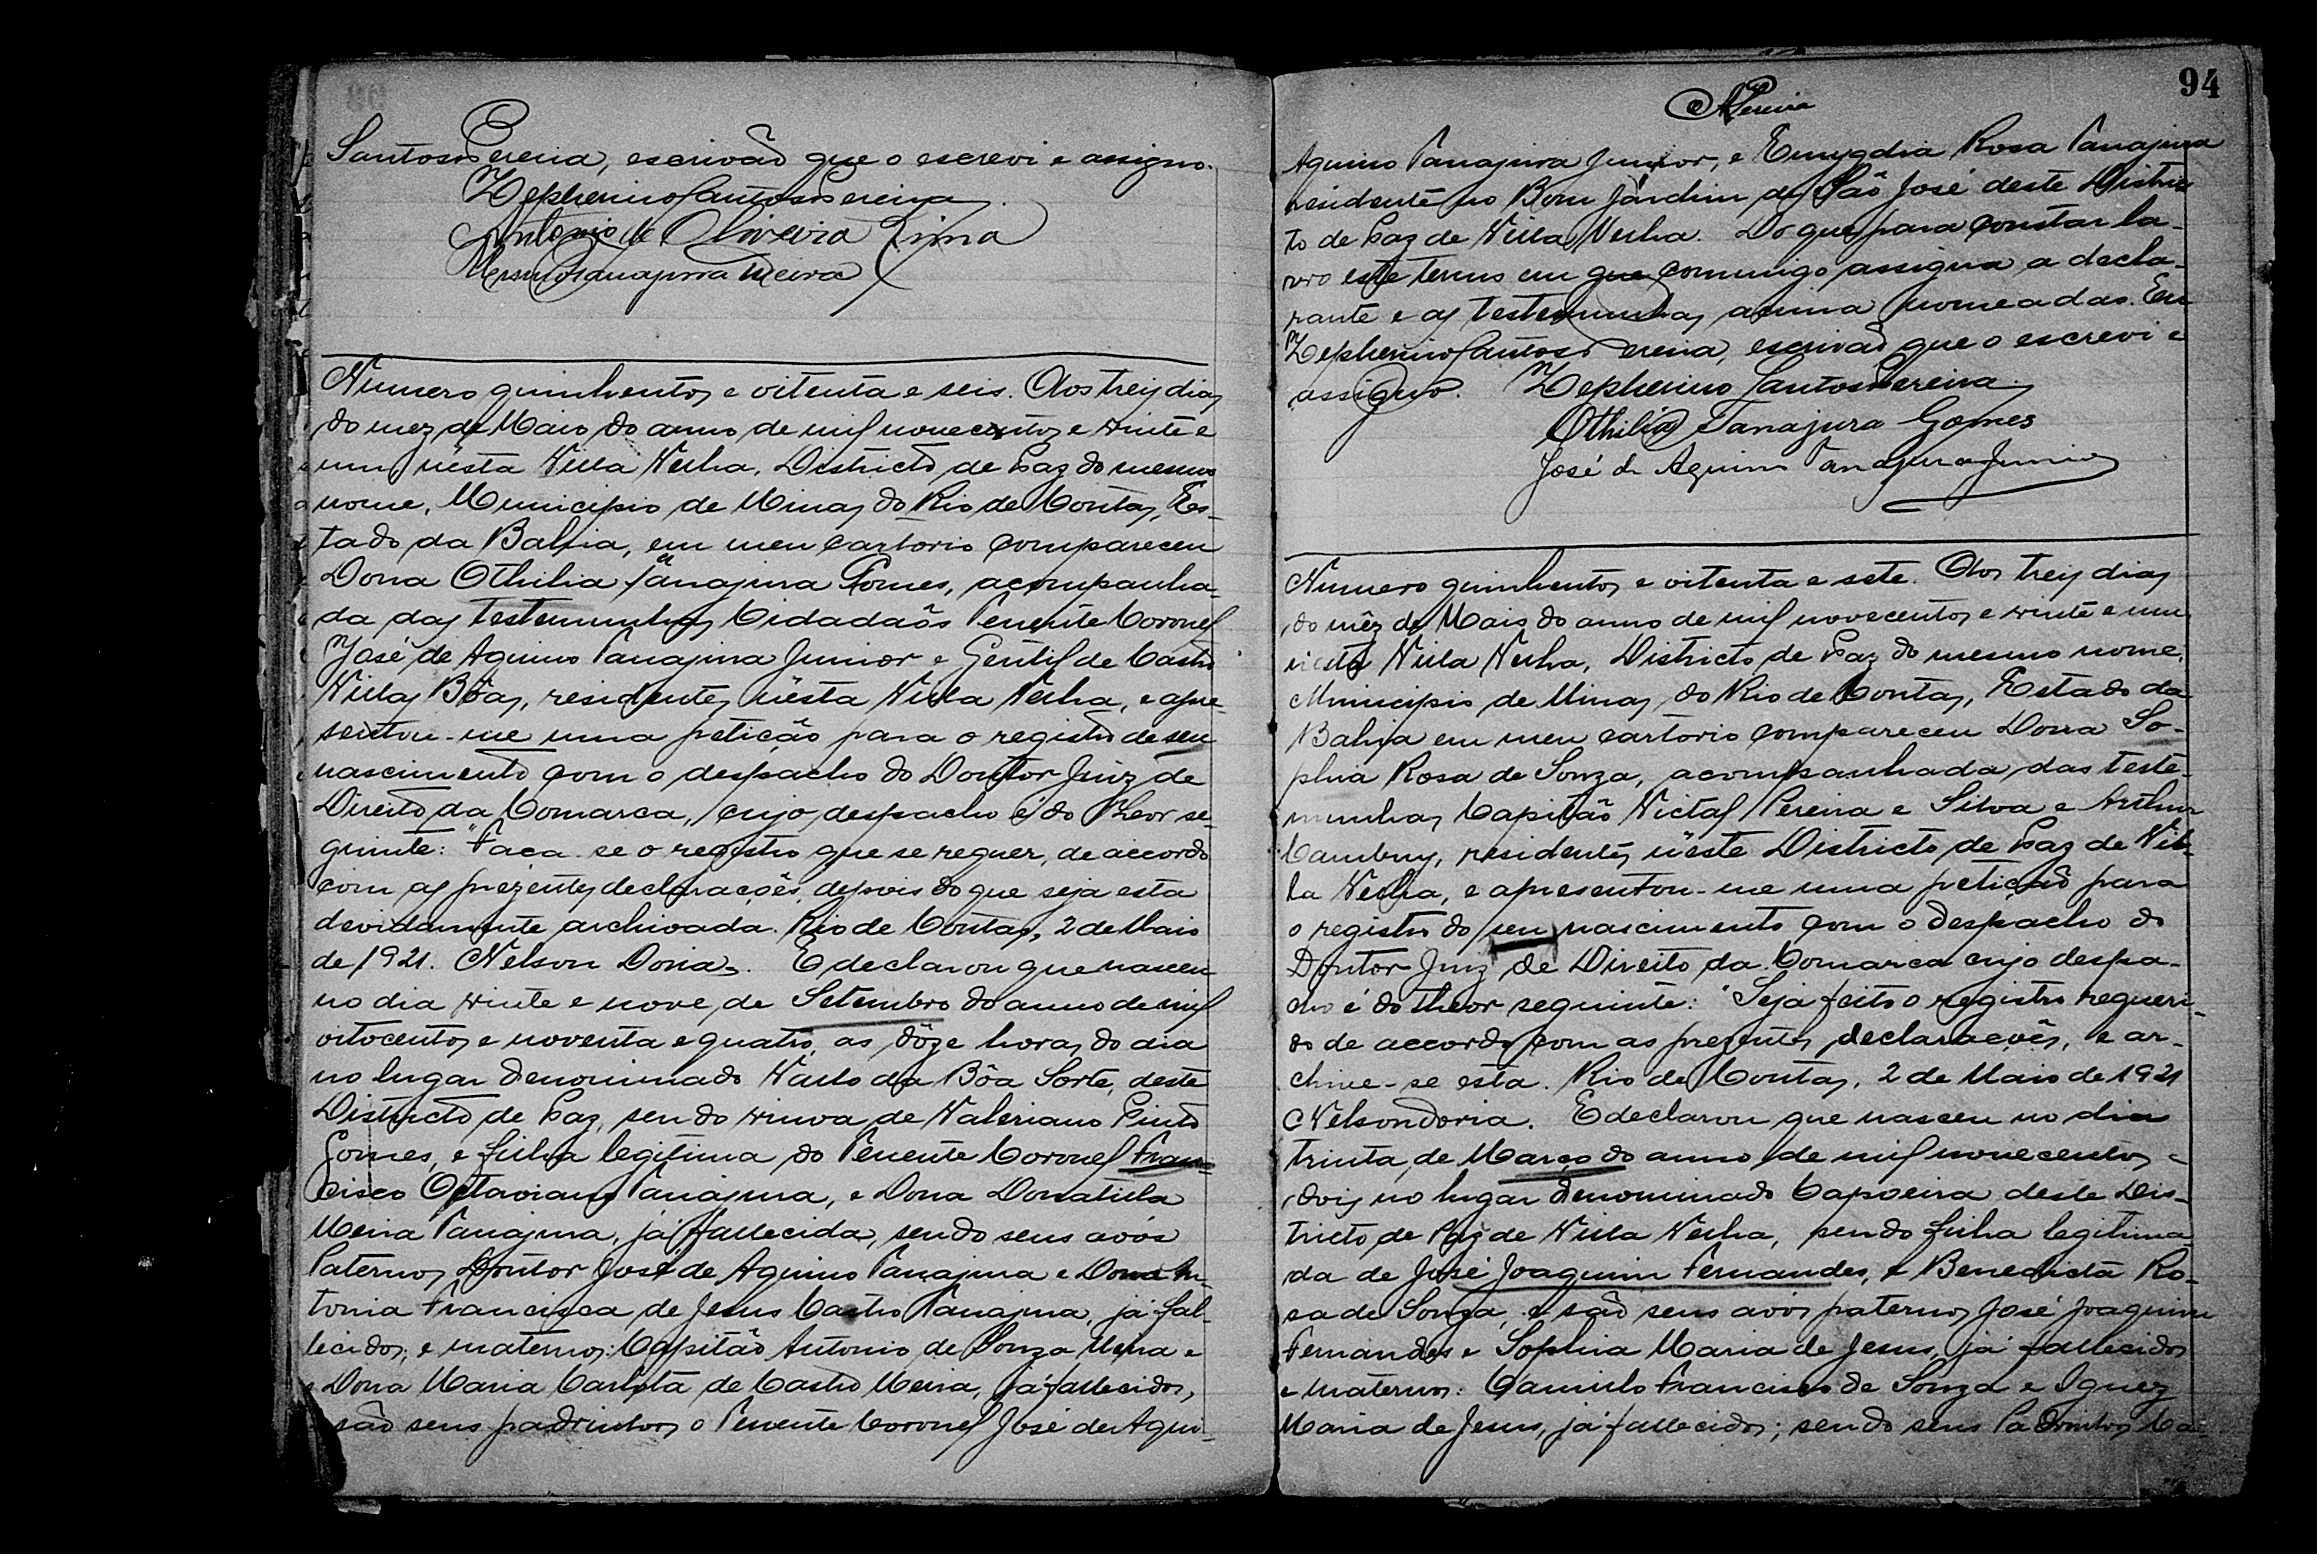 Santos Pereira, escrivão que o escrevi e assigno.
Zepherino Santos Pereira
Antonio de Oliveira Lima
Tanajura Meira
Numero quinhentos e oitenta e seis. Aos treis dias
do mez de Maio do anno de mil novecentos e vinte e
um, n'esta Villa Velha, Districto de Paz do mesmo
nome, Municipio de Minas do Rio de Contas, Es-
tado da Bahia, em meu cartorio compareceu
Dona Othilia Tanajura Gomes, acompanha-
da das testemunhas Cidadãos Tenente Coronel
José de Aquino Tanajura Junior e Gentil de Castro
Villas Bôas, residentes n'esta Villa Velha, e apre-
sentou-me uma petição para o registro de seu
nascimento com o despacho do Doutor Juiz de
Direito da Comarca, cujo despacho é do theor se-
guinte: "Faça-se o registro que se requer, de accordo
com as prezentes declarações, depois do que seja esta
devidamente archivada. Rio de Contas, 2 de Maio
de 1921. Nelson Doria. E declarou que nasceu
no dia vinte e nove de Setembro do anno de mil
oitocentos e noventa e quatro, as dôze horas do dia
no lugar denominado Vallo da Bôa Sorte, deste
Districto de Paz, sendo viuva de Valeriano Pinto
Gomes, e filha legitima do Tenente Coronel Fran-
cisco Octaviano Tanajura, e Dona Donatilla
Meira Tanajura, já fallecida, sendo seus avós
Paternos Doutor José de Aquino Tanajura e Dona An-
tonia Francisca de Jesus Castro Tanajura, já fal-
lecidos; e maternos: Capitão Antonio de Souza Meira e
Dona Maria Carlota de Castro Meira, já fallecidos,
são seus padrinhos o Tenente Coronel José de Aqui-
94
APereira
Aquino Tanajura Junior, e Emygdia Rosa Tanajura
residente no Bom Jardim de São José deste Distric
to de Paz de Villa Velha. Do que para constar la-
vro este termo em que commigo assigna a decla-
rante e as testemunhas acima nomeadas. Eu
Zepherino Santos Pereira, escrivão que o escrevi e
assigno. Zepherino Santos Pereira
Othilia Tanajura Gomes
José de Aquino Tanajura Junior
Numero quinhentos e oitenta e sete. Aos treis dias
do mêz de Maio do anno de mil novecentos e vinte e um
n'esta Villa Velha, Districto de Paz do mesmo nome,
Municipio de Minas do Rio de Contas, Estado da
Bahia em meu cartorio compareceu Dona So-
phia Rosa de Souza, acompanhada das teste-
munhas Capitão Victal Pereira e Silva e Arthur
Cambuy, residentes n'este Districto de Paz de Vil-
la Velha, e apresentou-me uma petição para
o registro do seu nascimento com o despacho do
Doutor Juiz de Direito da Comarca cujo despa-
cho é do theor seguinte: "Seja feito o registro requeri-
do de accordo com as prezentes declarações, e ar-
chive-se esta. Rio de Contas, 2 de Maio de 1921
Nelson Doria. E declarou que nasceu no dia
trinta de Março do anno de mil novecentos e
dois no lugar denominado Capoeira deste Dis-
tricto de Paz de Villa Velha, sendo filha legitima
da de José Joaquim Fernandes, e Benedicta Ro-
sa de Souza, e são seus avós paternos José Joaquim
Fernandes e Sophia Maria de Jesus, já fallecidos
e maternos: Camillo Francisco de Souza e Ignez
Maria de Jesus, já fallecidos; sendo seus Padrinhos Ca-